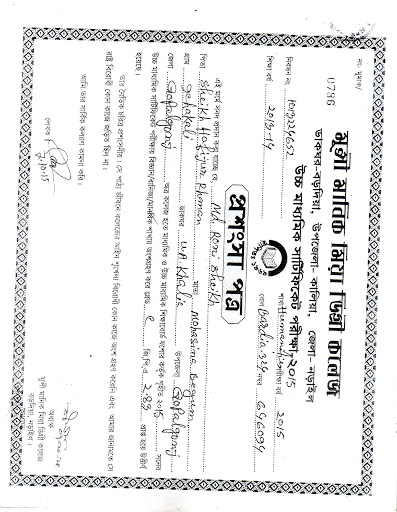 নং- মুমাক/
0786
মুন্সী মানিক মিয়া ডিগ্রী কলেজ
ডাকঘর-বড়দিয়া, উপজেলা- কালিয়া, জেলা- নড়াইল
উচ্চ মাধ্যমিক সার্টিফিকেট পরীক্ষা-২০১৫
নিবন্ধন নং 1013224652 শাখা Humanities পরীক্ষা বর্ষ 2015
শিক্ষা বর্ষ 2013-14 রোল Bardia-324 নম্বর 646094
স্থাপিতঃ ১৯৬৯
প্রশংসা পত্র
এই মর্মে সনদ প্রদান করা যাচ্ছে যে, Md. Roni Sheikh
পিতা Sheikh Hafijur Rhman মাতা Mohasina Begum
গ্রাম ডাকঘর U.A. Khalia উপজেলা Gopalgonj
জেলা Gopalgonj অত্র কলেজ হতে মাধ্যমিক ও উচ্চ মাধ্যমিক শিক্ষাবোর্ড যশোর কর্তৃক গৃহীত 2015 সনের
উচ্চ মাধ্যমিক সার্টিফিকেট পরীক্ষায় বিজ্ঞান/বানিজ্য/মানবিক শাখায় অংশগ্রহণ করে গ্রেড C জি,পি,এ 2.83 প্রাপ্ত হয়ে উত্তীর্ণ
হয়েছে।
তার নৈতিক চরিত্র প্রশংসনীয়। সে পাঠ্য জীবনে কলেজের আইন শৃংখলা বিরোধী কোন কাজে অংশ গ্রহণ করেনি এবং আমার জানামতে সে
রাষ্ট্র বিরোধী কোন কাজে জড়িত ছিল না।
আমি তার সার্বিক কল্যাণ কামনা করি।
লেখক
7.10.15
অধ্যক্ষ
মুন্সী মানিক মিয়া ডিগ্রী কলেজ
বড়দিয়া, নড়াইল।